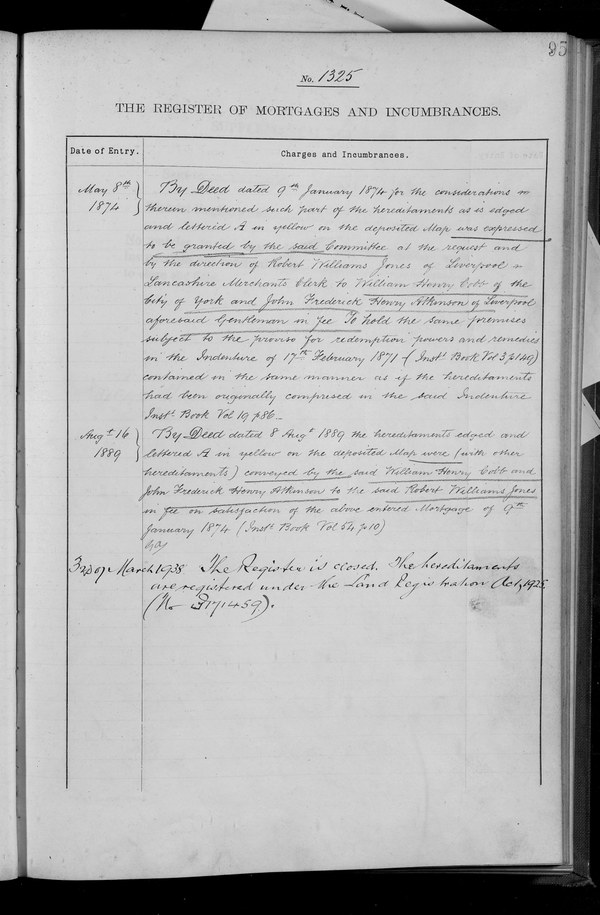 95
No. 1325
THE REGISTER OF MORTGAGES AND INCUMBRANCES.
Date of Entry. Charges and Incumbrances.
May 8th 1874
By Deed dated 9th January 1874 for the considerations
therein mentioned such part of the hereditaments as is edged
and lettered A in yellow on the deposited Map was expressed
to be granted by the said Committee at the request and
by the direction of Robert Williams Jones of Liverpool in
Lancashire Merchants Clerk to William Henry Cobb of the
City of York and John Frederick Henry Atkinson of Liverpool
aforesaid Gentleman in fee To hold the same premises
subject to the proviso for redemption powers and remedies
in the Indenture of 17th February 1871 (Inst. Book Vol 3 p 149)
contained in the same manner as if the hereditaments
had been originally comprised in the said Indenture
Inst. Book Vol 19 p 86
Augt 16 1889
By Deed dated 8 Augt 1889 the hereditaments edged and
lettered A in yellow on the deposited Map were (with other
hereditaments) conveyed by the said William Henry Cobb and
John Frederick Henry Atkinson to the said Robert Williams Jones
in fee on satisfaction of the above entered Mortgage of 9th
January 1874 (Inst. Book Vol 54 p 10)
3rd of March 1938 The Register is closed. The hereditaments
are registered under the Land Registration Act, 1925
(No P171459).